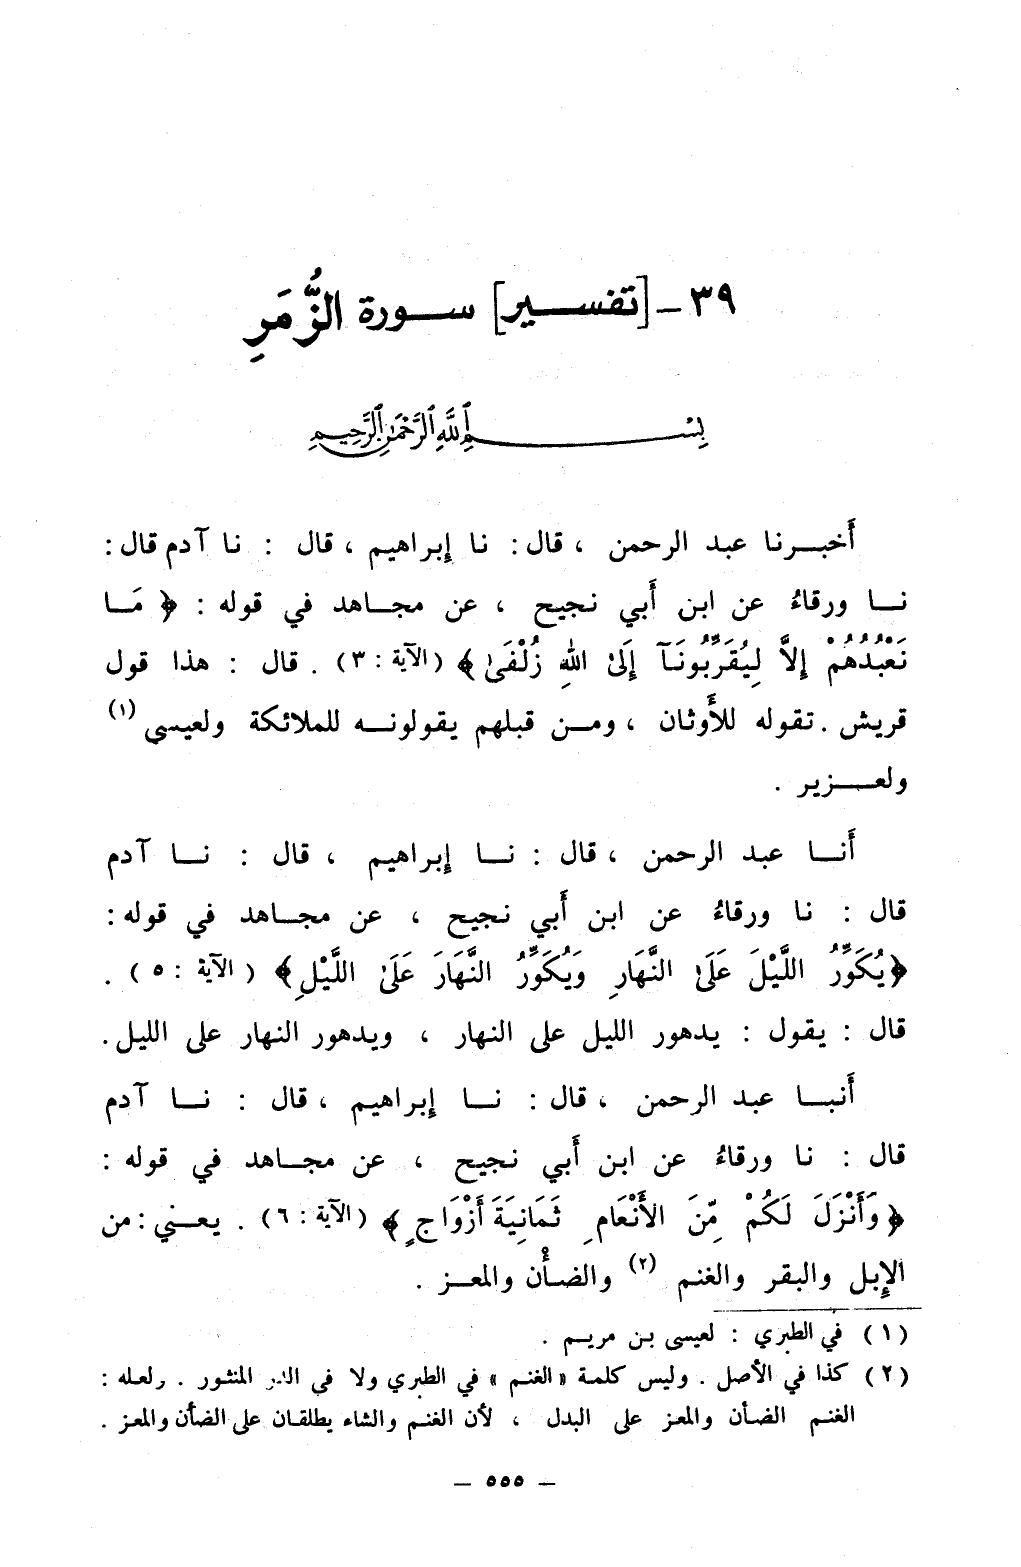 ٣٩ - [تفسير] سورة الزُّمَرِ
بِسْمِ اللَّهِ الرَّحْمَٰنِ الرَّحِيمِ
أَخبرنا عبد الرحمن ، قال : نا إبراهيم ، قال : نا آدم قال :
نا ورقاءُ عن ابن أَبي نجيح ، عن مجاهد في قوله : ﴿ مَا
نَعْبُدُهُمْ إِلاَّ لِيُقَرِّبُونَآ إِلَىٰ اللهِ زُلْفَىٰ ﴾ ( الآية : ٣ ) . قال : هذا قول
قريش . تقوله للأَوثان ، ومن قبلهم يقولونه للملائكة ولعيسى (١)
ولعزير .
أَنا عبد الرحمن ، قال : نا إبراهيم ، قال : نا آدم
قال : نا ورقاءُ عن ابن أَبي نجيح ، عن مجاهد في قوله :
﴿ يُكَوِّرُ اللَّيْلَ عَلَىٰ النَّهَارِ وَيُكَوِّرُ النَّهَارَ عَلَىٰ اللَّيْلِ ﴾ ( الآية : ٥ ) .
قال : يقول : يدهور الليل على النهار ، ويدهور النهار على الليل .
أَنبا عبد الرحمن ، قال : نا إبراهيم ، قال : نا آدم
قال : نا ورقاءُ عن ابن أَبي نجيح ، عن مجاهد في قوله :
﴿ وَأَنْزَلَ لَكُمْ مِّنَ الأَنْعَامِ ثَمَانِيَةَ أَزْوَاجٍ ﴾ ( الآية : ٦ ) . يعني : من
الإِبل والبقر والغنم (٢) والضأْن والمعز .
( ١ ) في الطبري : لعيسى بن مريم .
( ٢ ) كذا في الأصل . وليس كلمة « الغنم » في الطبري ولا في الدر المنثور . ولعله :
الغنم الضأن والمعز على البدل ، لأن الغنم والشاء يطلقان على الضأن والمعز .
— ٥٥٥ —